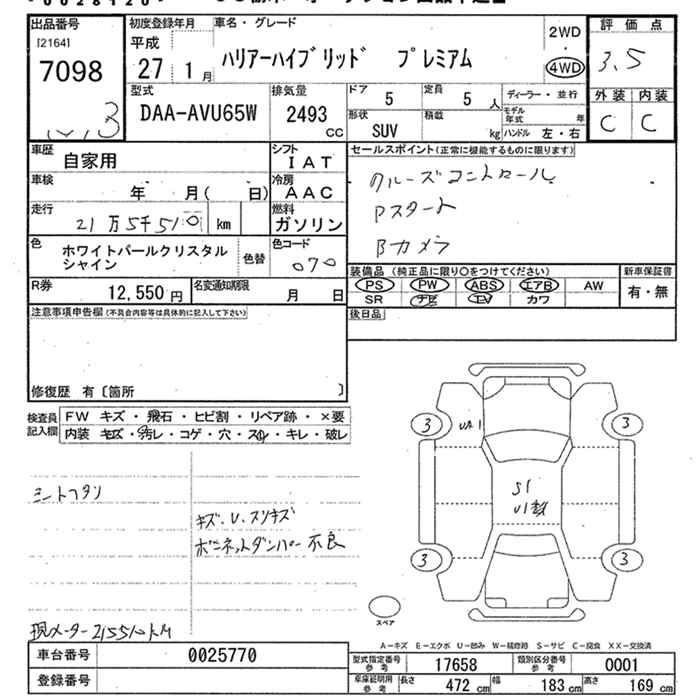 出品番号 初度登録年月 車名・グレード 2WD 評価点
[2164] 平成 ハリアーハイブリッド プレミアム 4WD 3.5
7098 27 1月
型式 排気量 ドア 5 定員 5人 ディーラー・並行 外装 内装
DAA-AVU65W 2493 CC 形状 SUV 積載 kg モデル年式 年 C C
ハンドル 左・右
車歴 自家用 シフト IAT セールスポイント(正常に機能するものに限ります)
車検 年 月( 日) 冷房 AAC クルーズコントロール
走行 21万5千510 km 燃料 ガソリン Pスタート
色 ホワイトパールクリスタル 色替 色コード Bカメラ
シャイン 070
R券 12,550円 名変通知期限 月 日 装備品(純正品に限り○をつけてください) 新車保証書
PS PW ABS エアB AW 有・無
SR ナビ TV カワ
注意事項申告欄(不具合内容等は具体的に記入して下さい) 後日品
修復歴 有〔箇所 〕
検査員 FW キズ・飛石・ヒビ割・リペア跡・×要
記入欄 内装 キズ・汚レ・コゲ・穴・スレ・キレ・破レ
3 UA1 3
シートフタリ S1
キズ・U・スリキズ
ボンネットダンパー不良
3 3
スペア
現メーター 215510km
A-キズ E-エクボ U-凹み W-補修跡 S-サビ C-腐食 XX-交換済
車台番号 0025770 型式指定番号 参考 17658 類別区分番号 参考 0001
登録番号 車庫証明用 参考 長さ 472 cm 幅 183 cm 高さ 169 cm